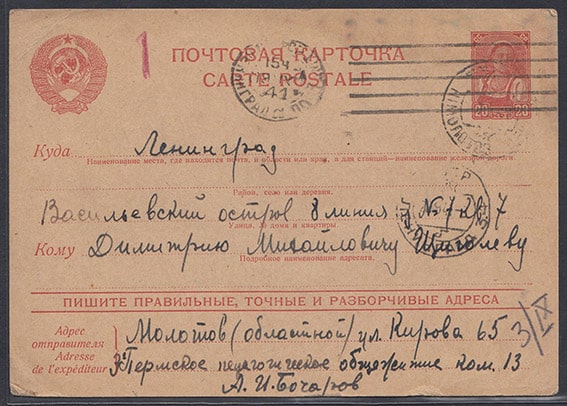 ПОЧТОВАЯ КАРТОЧКА
CARTE POSTALE
1541
41
20 20
Куда Ленинград
Наименование места, где находится почта, и области или края, а для станций—наименование железной дороги.
Район, село или деревня.
Васильевский остров 8 линия 7
Улица, № дома и квартиры.
Кому Димитрию Михайловичу Щеголеву
Подробное наименование адресата.
ПИШИТЕ ПРАВИЛЬНЫЕ, ТОЧНЫЕ И РАЗБОРЧИВЫЕ АДРЕСА
Адрес отправителя
Adresse de l'expéditeur
Молотов (областной) ул. Кирова 65
Пермское педагогическое общежитие ком. 13
А. И. Бочаров